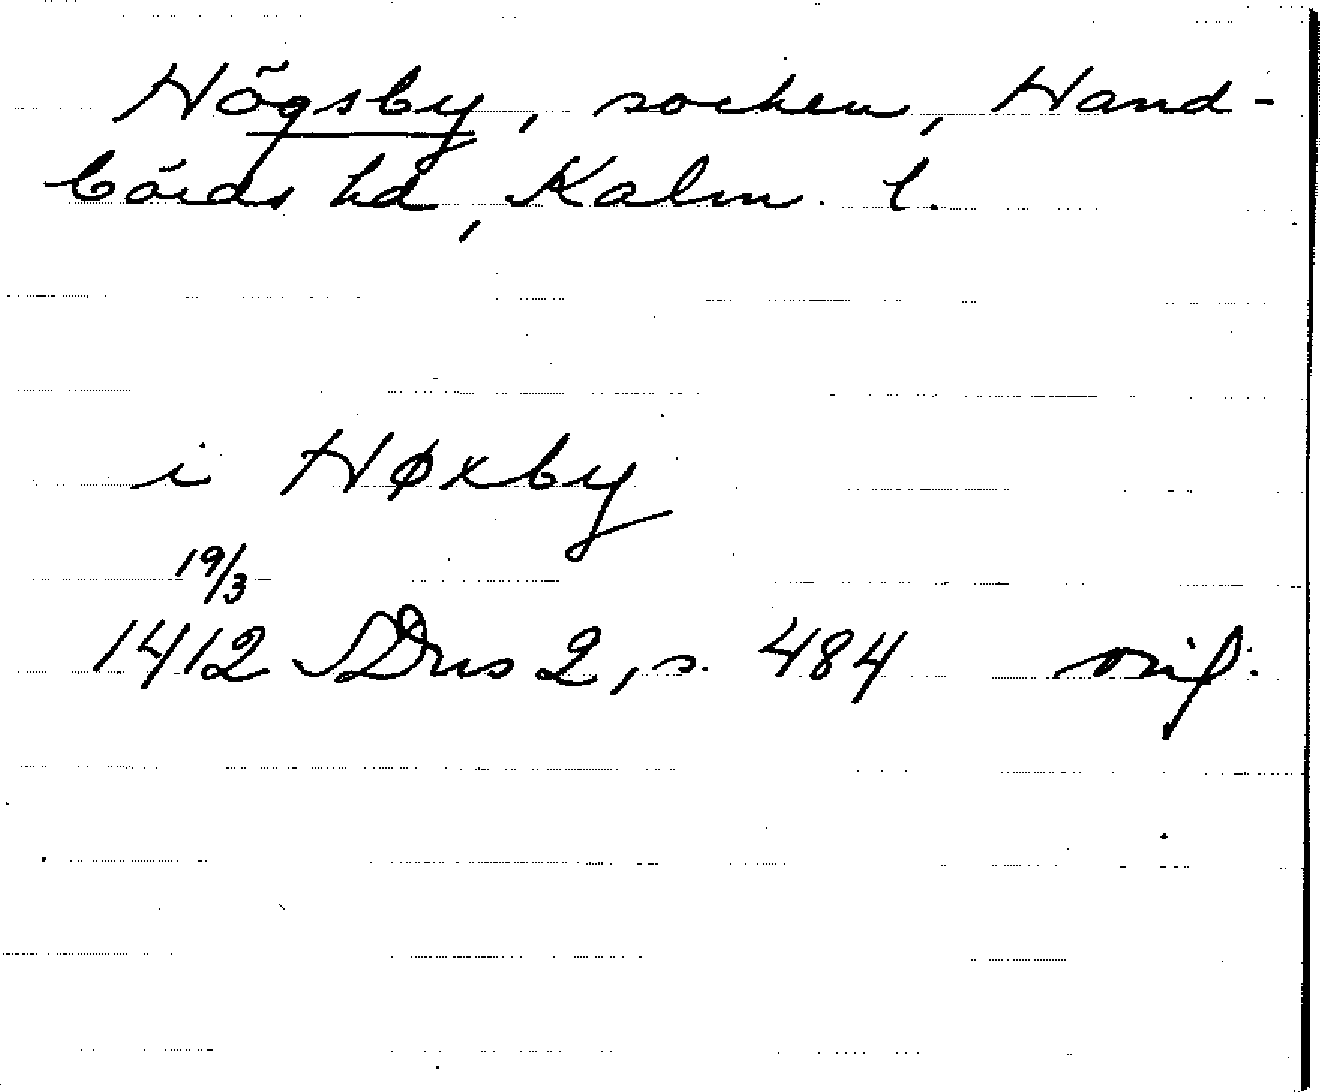 Högsby, socken, Hand-
börds hd, Kalm. l.
i Høxby
19/3
1412 SDns 2, s. 484 orig.